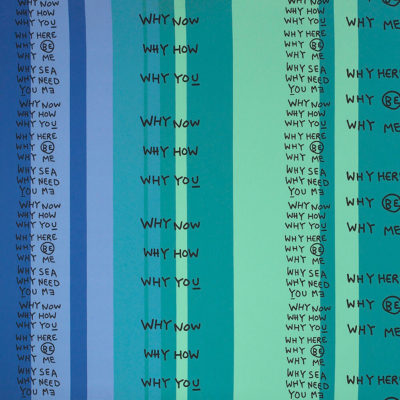 WHY NOW
WHY HOW
WHY YOU
WHY HERE
WHY BE
WHY ME
WHY SEA
WHY NEED
YOU ME
WHY NOW
WHY HOW
WHY YOU
WHY HERE
WHY BE
WHY ME
WHY SEA
WHY NEED
YOU ME
WHY NOW
WHY HOW
WHY YOU
WHY HERE
WHY BE
WHY ME
WHY SEA
WHY NEED
YOU ME
WHY NOW
WHY HOW
WHY YOU
WHY HERE
WHY BE
WHY ME
WHY SEA
WHY NEED
YOU ME
WHY NOW
WHY HOW
WHY YOU
WHY NOW
WHY HOW
WHY YOU
WHY NOW
WHY HOW
WHY YOU
WHY NOW
WHY HOW
WHY YOU
WHY NOW
WHY HOW
WHY YOU
WHY HERE
WHY BE
WHY ME
WHY SEA
WHY NEED
YOU ME
WHY NOW
WHY HOW
WHY YOU
WHY HERE
WHY BE
WHY ME
WHY SEA
WHY NEED
YOU ME
WHY NOW
WHY HOW
WHY YOU
WHY HERE
WHY BE
WHY ME
WHY SEA
WHY NEED
YOU ME
WHY NOW
WHY HOW
WHY YOU
WHY HERE
WHY BE
WHY ME
WHY SEA
WHY NEED
YOU ME
WHY ME
WHY HERE
WHY BE
WHY ME
WHY HERE
WHY BE
WHY ME
WHY HERE
WHY BE
WHY ME
WHY HERE